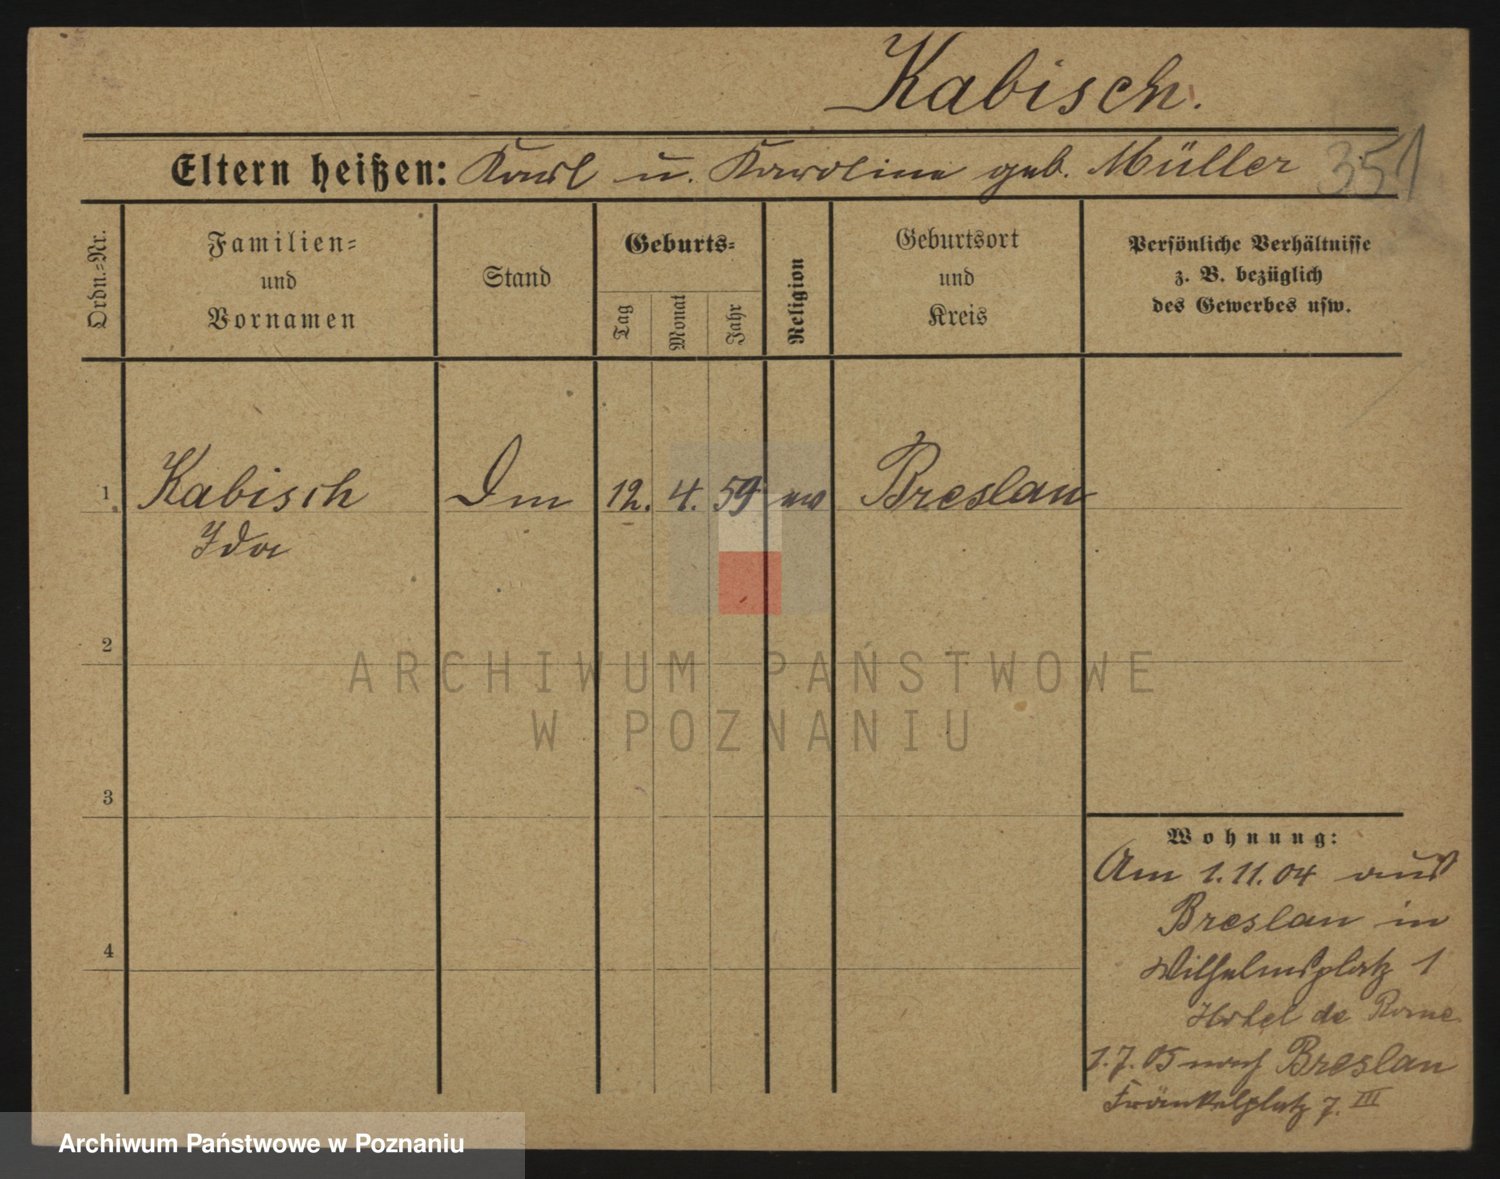 Kabisch.
Eltern heißen: Karl u. Karoline geb. Müller 351
Ordn.=Nr.
Familien=
und
Vornamen
Stand
Geburts=
Tag
Monat
Jahr
Religion
Geburtsort
und
Kreis
Persönliche Verhältnisse
z. B. bezüglich
des Gewerbes usw.
1. Kabisch 12. 4. 59 ew Breslau
Ida
2
3
4
Wohnung:
Am 1.11.04 aus
Breslau in
Wilhelmsplatz 1
Hotel de Rome
1.7.05 nach Breslau
Fränkelplatz 7. III
ARCHIWUM PAŃSTWOWE
W POZNANIU
Archiwum Państwowe w Poznaniu